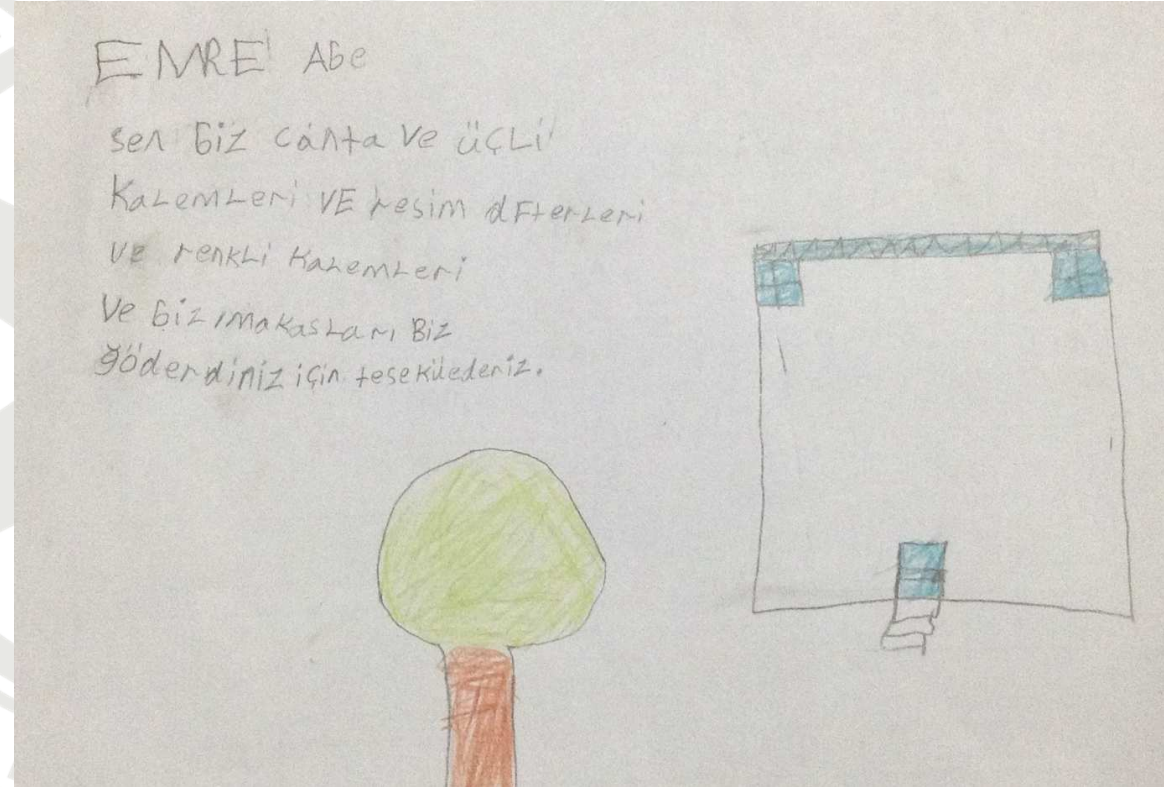 EMRE Abe
sen biz canta ve üçLi
KaLemLeri VE resim dFterLeri
ve renkLi KaLemLeri
Ve biz makasLarı Biz
göderdiniz için teseküederiz.